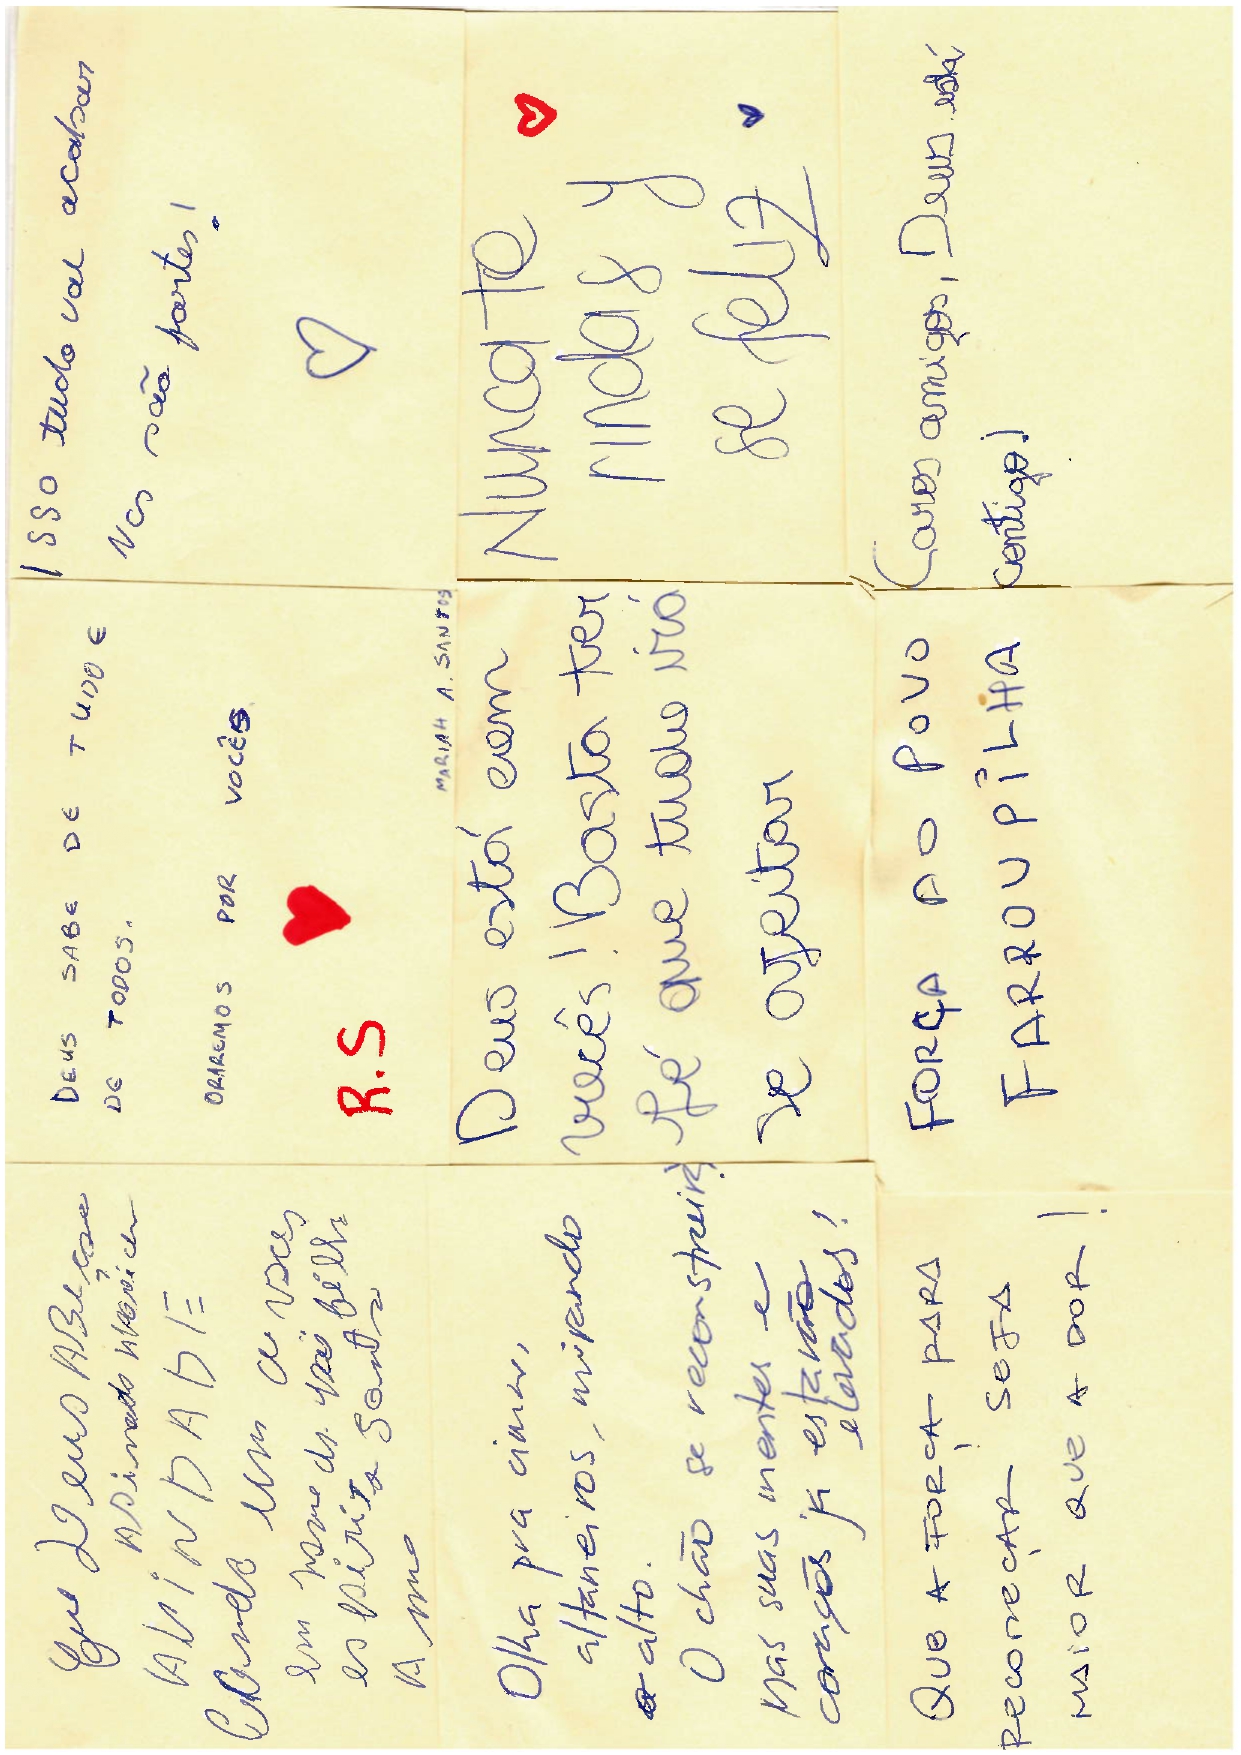 Que Deus ABensoe
AVINDADE
Cada um de voces
em nome do pai filho
espirito Santo
Ame
DEUS SABE DE TUDO E
DE TODOS.
ORAREMOS POR VOCÊS
R.S
MARIAH A. SANTOS
ISSO tudo vai acabar
Nos são fortes!
Olha pra cima,
altaneiros, mirando
o alto.
O chão se reconstruirá,
mas suas mentes e
corações já estarão
elevados!
Deus está com
vocês! Basta ter
fé que tudo irá
se ajeitar
Nunca te
rindas y
se feliz
QUE A FORÇA PARA
RECOMEÇAR SEJA
MAIOR QUE A DOR!
FORÇA AO POVO
FARROUPILHA
Caros amigos, Deus está
contigo!